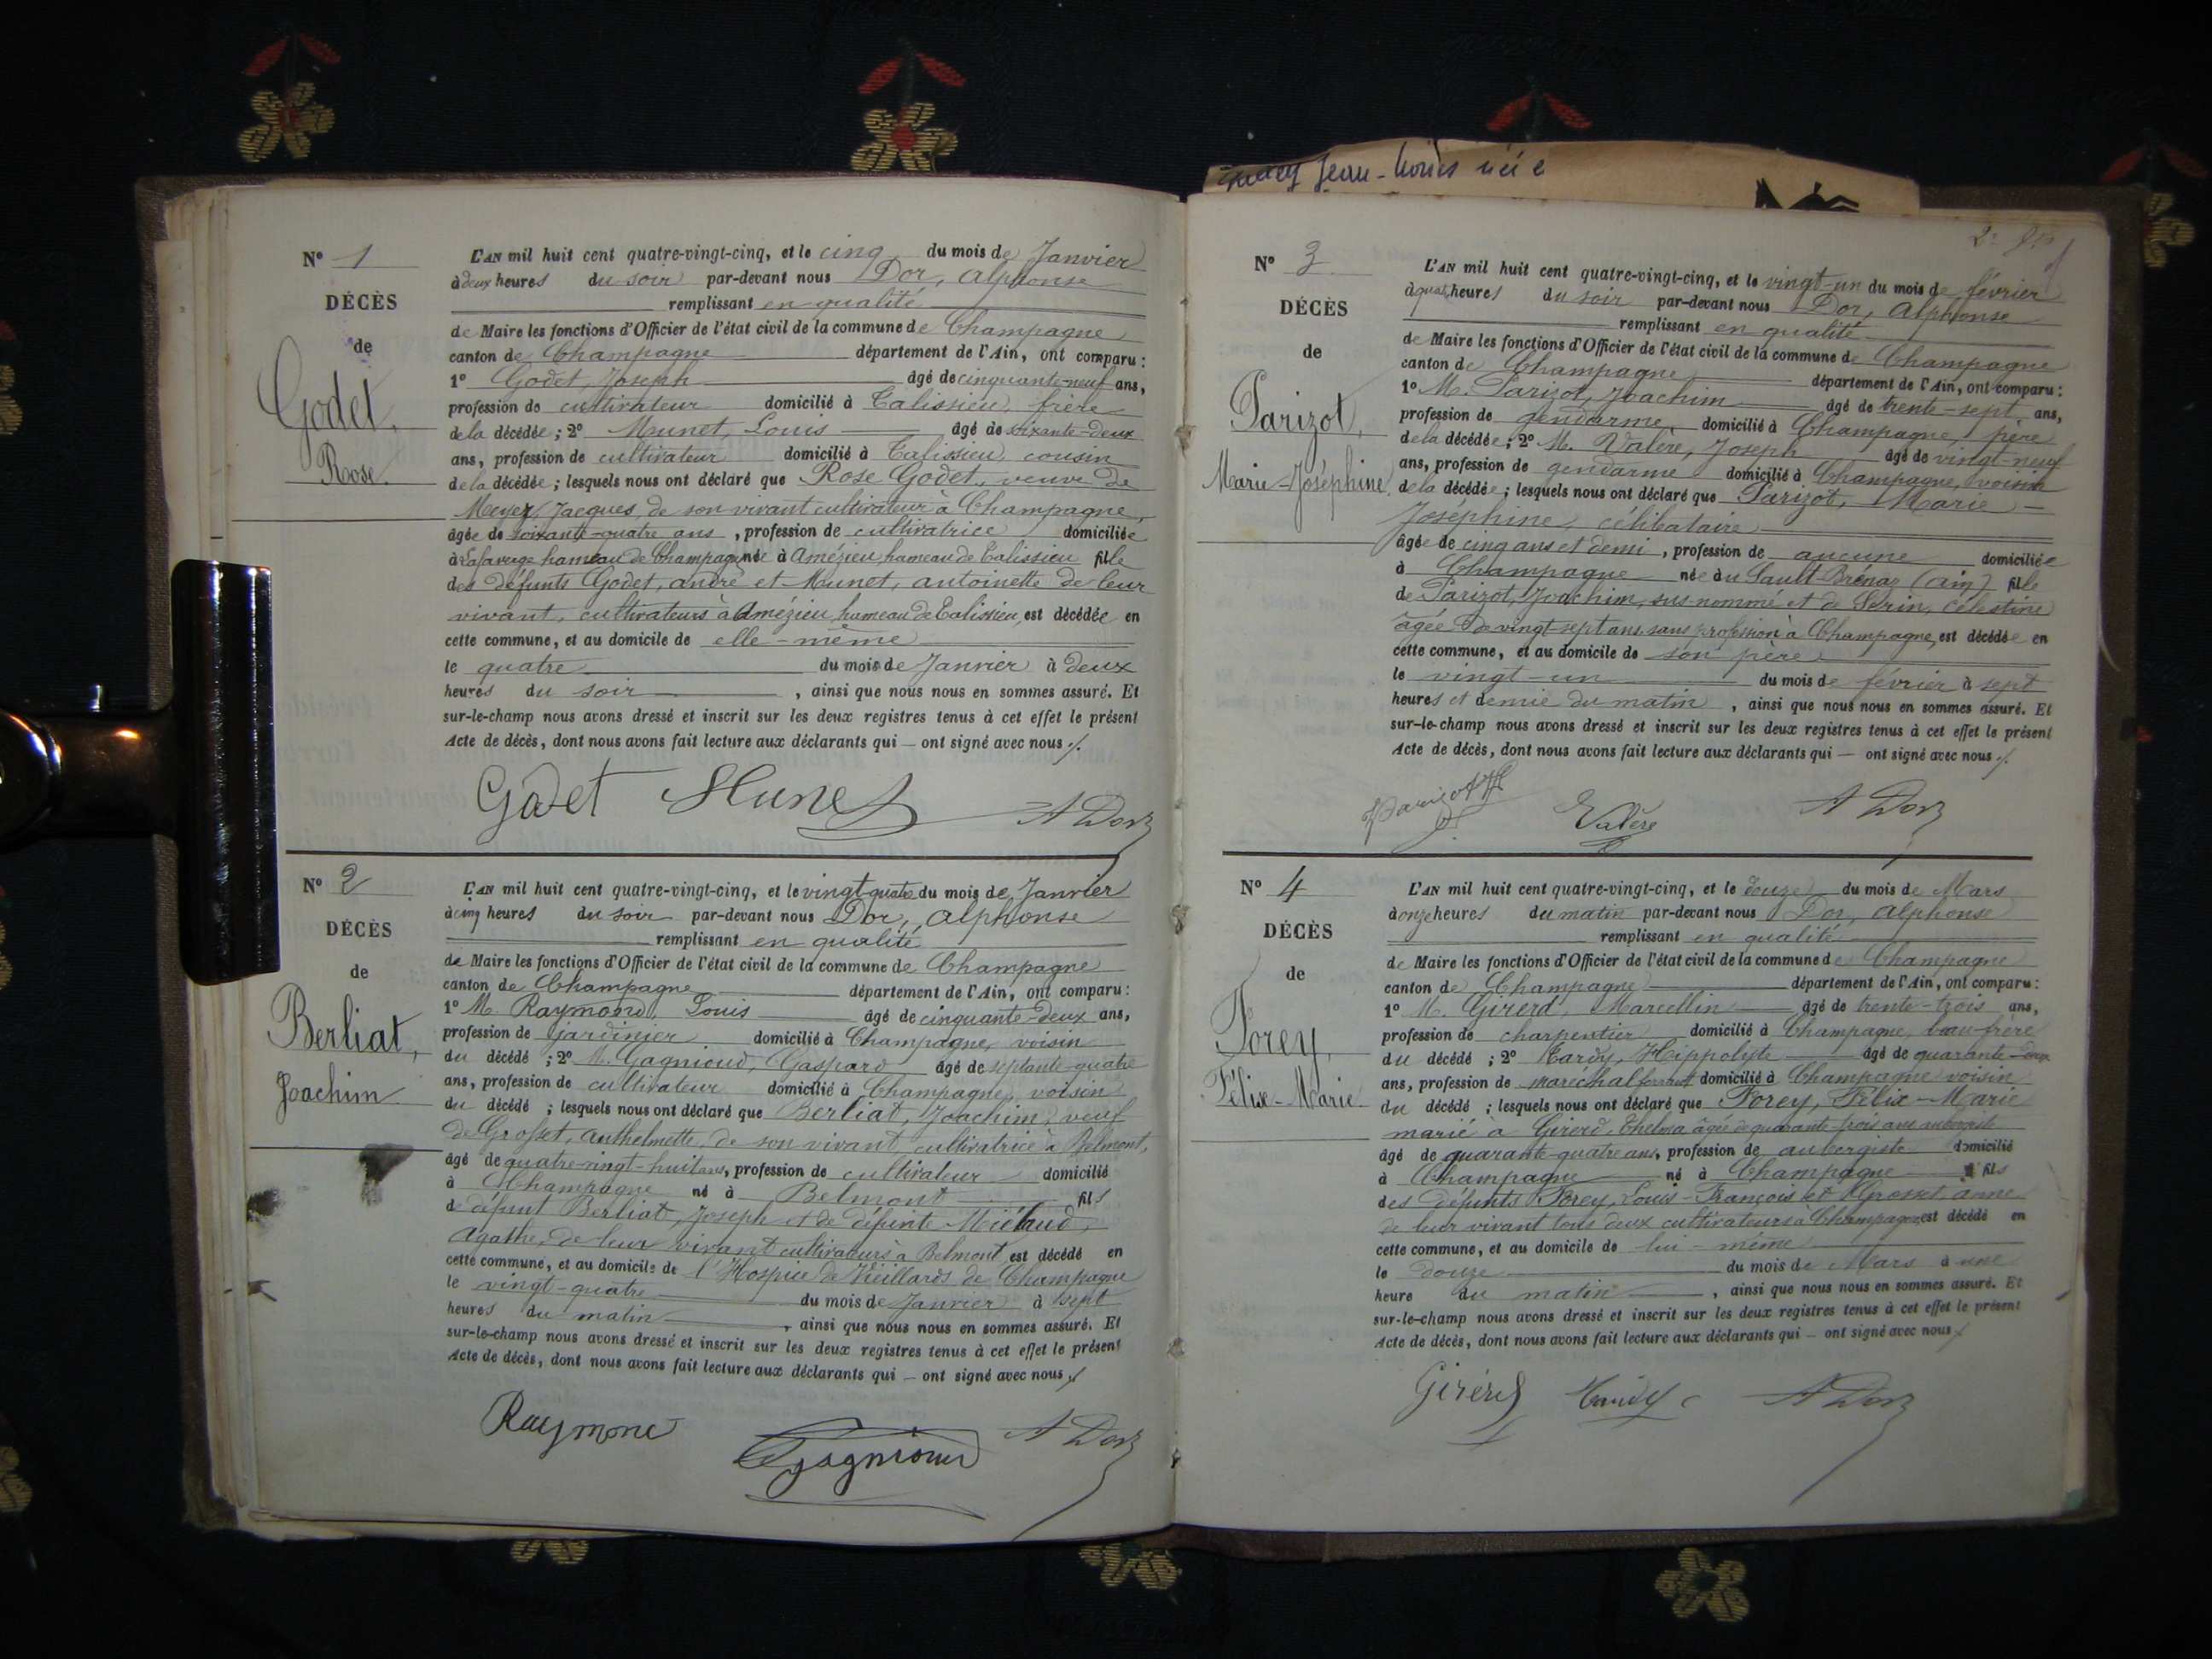 N° 1
DÉCÈS
de
Godet,
Rose.
L'AN mil huit cent quatre-vingt-cinq, et le cinq du mois de Janvier
à deux heures du soir par-devant nous Dor, Alphonse
remplissant en qualité
de Maire les fonctions d'Officier de l'état civil de la commune de Champagne
canton de Champagne département de l'Ain, ont comparu :
1° Godet, Joseph âgé de cinquante-neuf ans,
profession de cultivateur domicilié à Talissieu, frère
de la décédée ; 2° Munet, Louis âgé de soixante-deux
ans, profession de cultivateur domicilié à Talissieu, cousin
de la décédée ; lesquels nous ont déclaré que Rose Godet, veuve de
Meyer, Jacques, de son vivant cultivateur à Champagne,
âgée de soixante-quatre ans, profession de cultivatrice domiciliée
à Lafaverge hameau de Champagne née à Amézieu, hameau de Talissieu fille
des défunts Godet, André et Munet, Antoinette de leur
vivant, cultivateurs à Amézieu, hameau de Talissieu, est décédée en
cette commune, et au domicile de elle-même
le quatre du mois de Janvier à deux
heures du soir, ainsi que nous nous en sommes assuré. Et
sur-le-champ nous avons dressé et inscrit sur les deux registres tenus à cet effet le présent
Acte de décès, dont nous avons fait lecture aux déclarants qui — ont signé avec nous ./.
Godet Munet A Dor
N° 2
DÉCÈS
de
Berliat,
Joachim
L'AN mil huit cent quatre-vingt-cinq, et le vingt-quatre du mois de Janvier
à cinq heures du soir par-devant nous Dor, Alphonse
remplissant en qualité
de Maire les fonctions d'Officier de l'état civil de la commune de Champagne
canton de Champagne département de l'Ain, ont comparu :
1° M. Raymond, Louis âgé de cinquante-deux ans,
profession de jardinier domicilié à Champagne, voisin
du décédé ; 2° M. Gagnioud, Gaspard âgé de septante-quatre
ans, profession de cultivateur domicilié à Champagne, voisin
du décédé ; lesquels nous ont déclaré que Berliat, Joachim, veuf
de Grosset, Anthelmette, de son vivant, cultivatrice à Belmont,
âgé de quatre-vingt-huit ans, profession de cultivateur domicilié
à Champagne né à Belmont fils
de défunt Berliat, Joseph et de défunte
Agathe, de leur vivant cultivateurs à Belmont est décédé en
cette commune, et au domicile de l'Hospice de Vieillards de Champagne
le vingt-quatre du mois de Janvier à sept
heures du matin, ainsi que nous nous en sommes assuré. Et
sur-le-champ nous avons dressé et inscrit sur les deux registres tenus à cet effet le présent
Acte de décès, dont nous avons fait lecture aux déclarants qui — ont signé avec nous ./.
Raymond Gagnioud A Dor
Jean-Louis née
N° 3
DÉCÈS
de
Parizot,
Marie-Joséphine
L'AN mil huit cent quatre-vingt-cinq, et le vingt-un du mois de février
à quat. heures du soir par-devant nous Dor, Alphonse
remplissant en qualité
de Maire les fonctions d'Officier de l'état civil de la commune de Champagne
canton de Champagne département de l'Ain, ont comparu :
1° M. Parizot, Joachim âgé de trente-sept ans,
profession de gendarme domicilié à Champagne, père
de la décédée ; 2° M. Valère, Joseph âgé de vingt-neuf
ans, profession de gendarme domicilié à Champagne, voisin
de la décédée ; lesquels nous ont déclaré que Parizot, Marie-
Joséphine, célibataire
âgée de cinq ans et demi, profession de aucune domiciliée
à Champagne née au Sault-Brénaz (Ain) fille
de Parizot, Joachim, sus-nommé et de Serin, Célestine
âgée de vingt sept ans, sans profession à Champagne, est décédée en
cette commune, et au domicile de son père
le vingt-un du mois de février à sept
heures et demie du matin, ainsi que nous nous en sommes assuré. Et
sur-le-champ nous avons dressé et inscrit sur les deux registres tenus à cet effet le présent
Acte de décès, dont nous avons fait lecture aux déclarants qui — ont signé avec nous ./.
Parizot Valère A Dor
N° 4
DÉCÈS
de
Forey,
Félix-Marie
L'AN mil huit cent quatre-vingt-cinq, et le douze du mois de Mars
à onze heures du matin par-devant nous Dor, Alphonse
remplissant en qualité
de Maire les fonctions d'Officier de l'état civil de la commune de Champagne
canton de Champagne département de l'Ain, ont comparu :
1° M. Girerd, Marcellin âgé de trente-trois ans,
profession de charpentier domicilié à Champagne, beau-frère
du décédé ; 2° Tardy, Hippolyte âgé de quarante-deux
ans, profession de maréchal ferrant domicilié à Champagne voisin
du décédé ; lesquels nous ont déclaré que Forey, Félix-Marie
marié à Girerd, Thelma âgée de quarante-trois ans aubergiste
âgé de quarante-quatre ans, profession de aubergiste domicilié
à Champagne né à Champagne fils
des défunts Forey, Louis-François et Grosset, Anne
de leur vivant tous deux cultivateurs à Champagne, est décédé en
cette commune, et au domicile de lui-même
le douze du mois de Mars à une
heure du matin, ainsi que nous nous en sommes assuré. Et
sur-le-champ nous avons dressé et inscrit sur les deux registres tenus à cet effet le présent
Acte de décès, dont nous avons fait lecture aux déclarants qui — ont signé avec nous ./.
Girerd Tardy A Dor